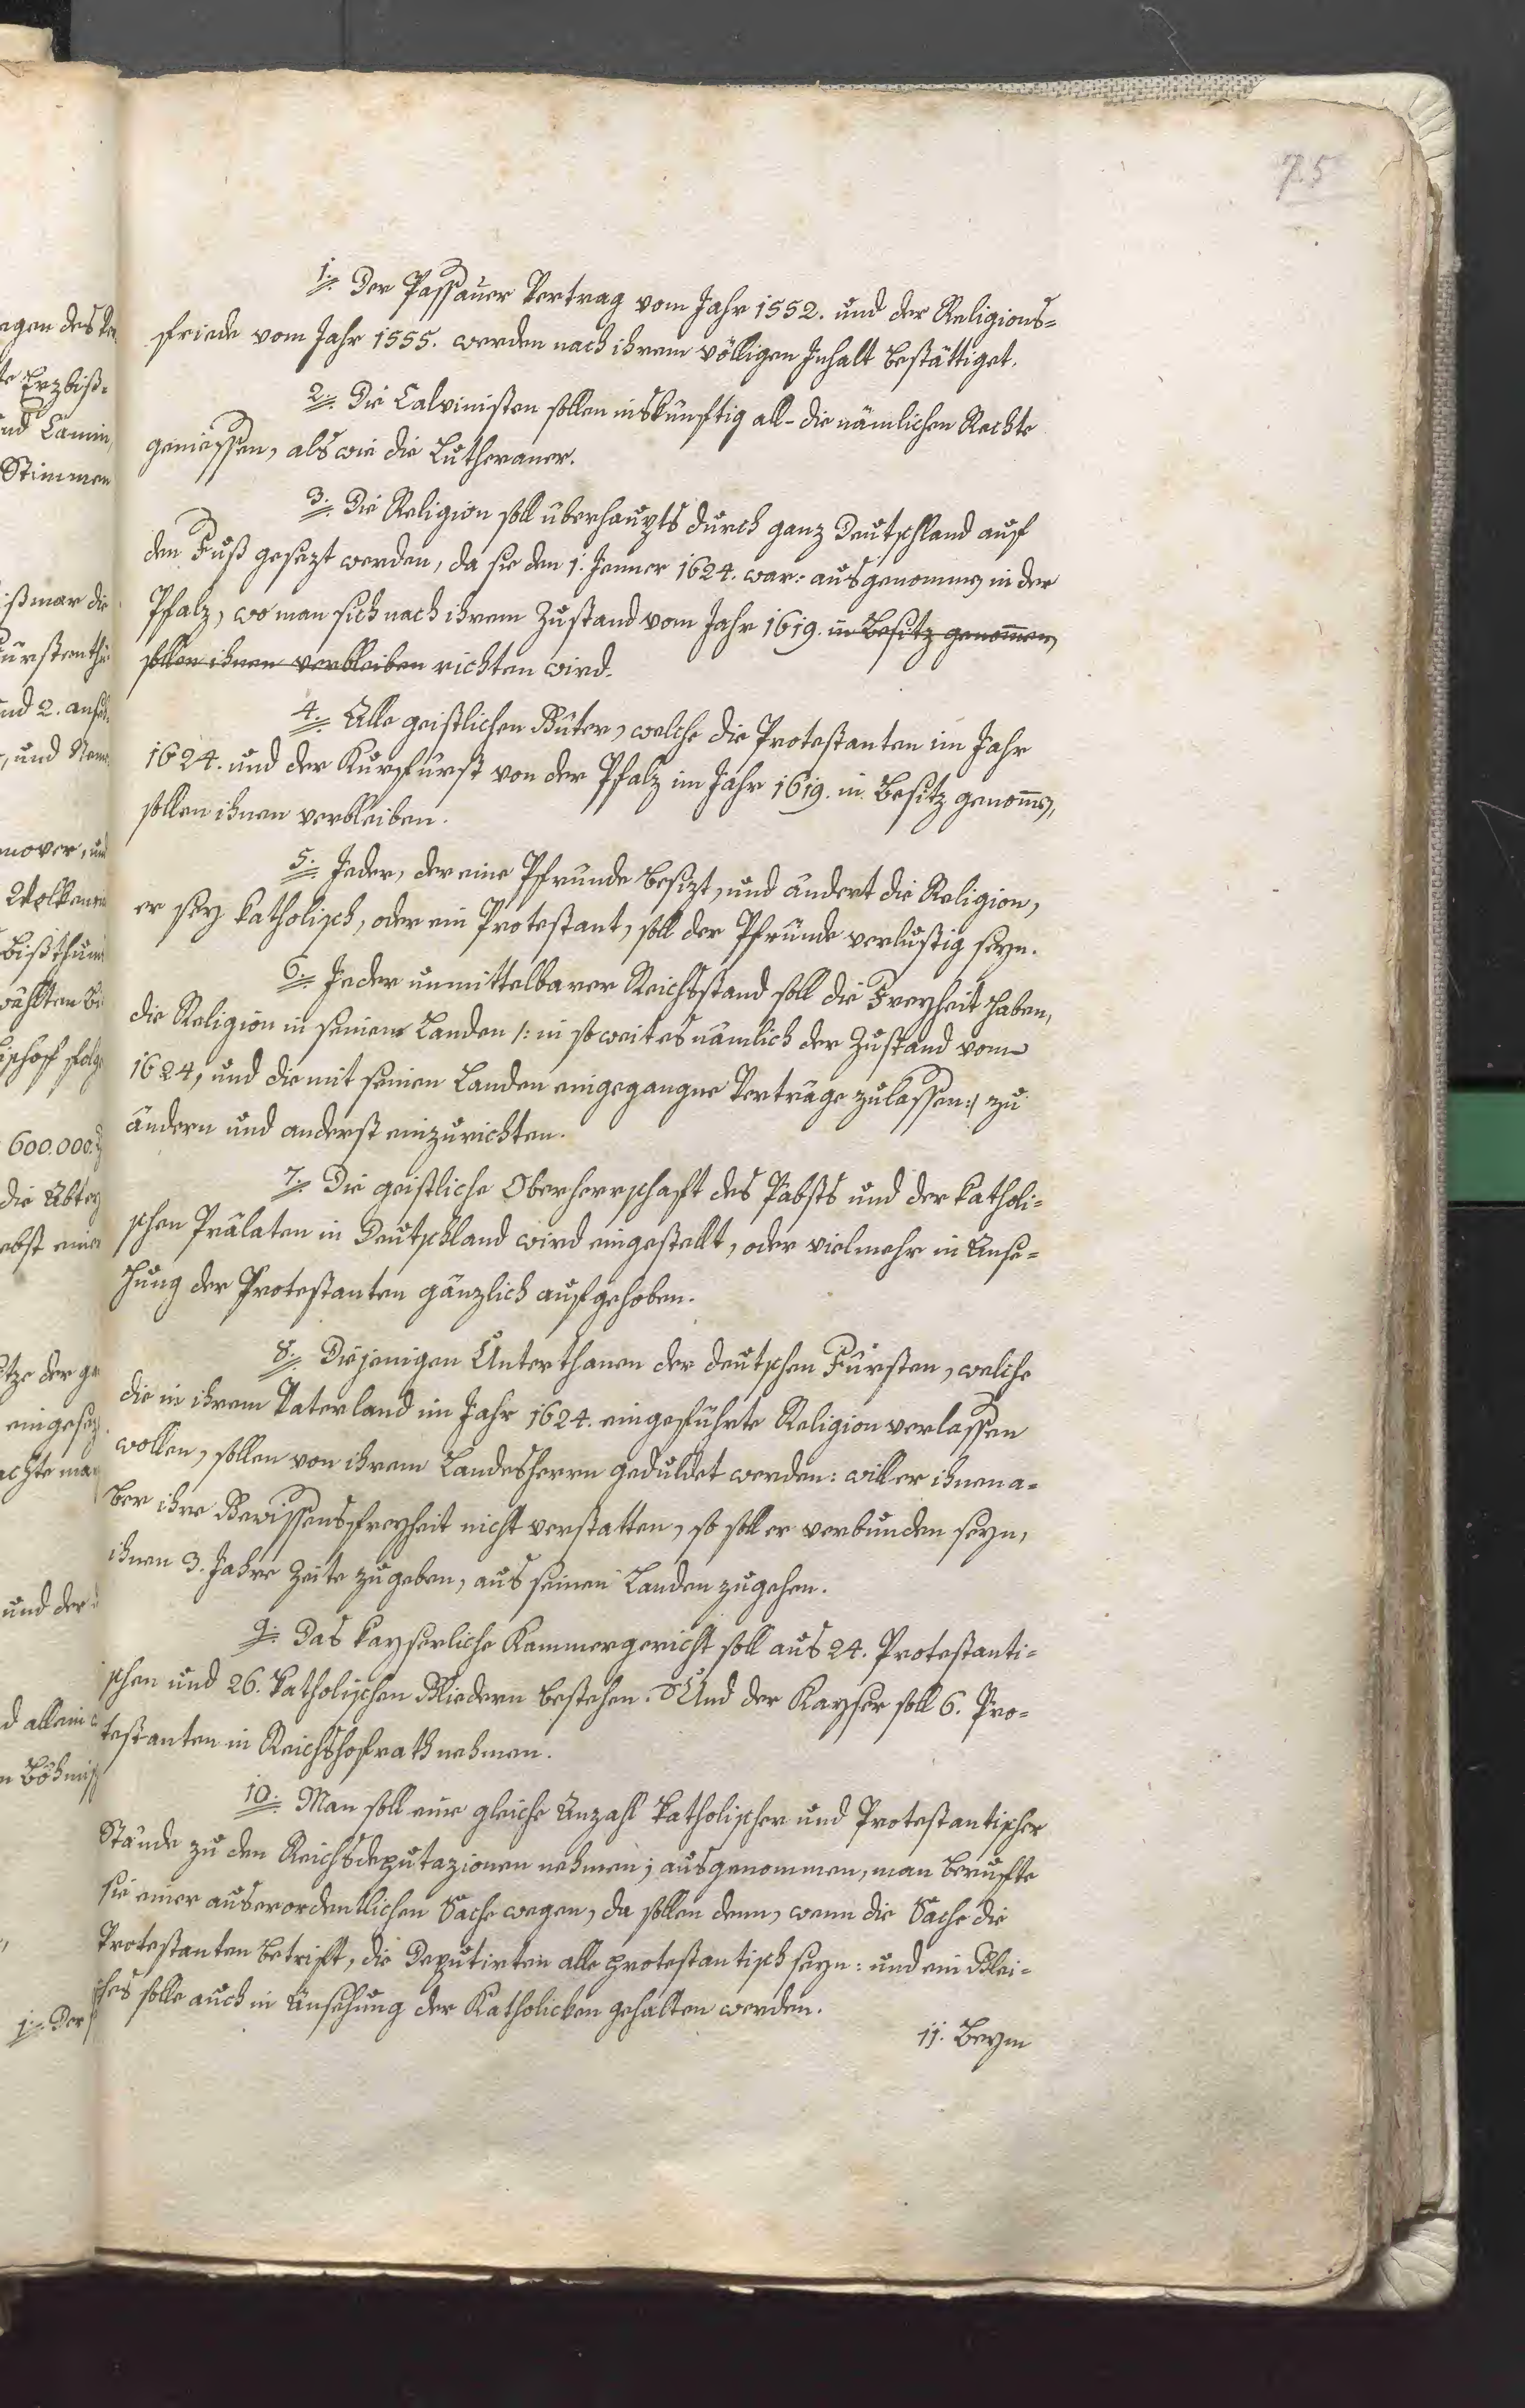 75
1. Der Passauer Vertrag vom Jahr 1552. und der Religions=
friede vom Jahr 1555. werden nach ihrem völligen Inhalt bestättiget.
2. Die Calvinisten sollen inskünftig all- die nämlichen Rechte
geniessen, als wie die Lutheraner.
3. Die Religion soll überhaupts durch ganz Deutschland auf
den Fuß gesezt werden, da sie den 1. Jenner 1624. war: ausgenomm̄en in der
Pfalz, wo man sich nach ihrem Zustand vom Jahr 1619. in Besitz genom̄en,
sollen ihnen verbleiben richten wird.
4. Alle geistlichen Güter, welche die Protestanten im Jahr
1624. und der Kurfürst von der Pfalz im Jahr 1619. in Besitz genom̄en,
sollen ihnen verbleiben.
5. Jeder, der eine Pfründe besizt, und ändert die Religion,
er sey katholisch, oder ein Protestant, soll der Pfründe verlustig seyn.
6. Jeder unmittelbarer Reichsstand soll die Freyheit haben,
die Religion in seinen Landen /: in so weit es nämlich der Zustand vom
1624, und die mit seinen Landen eingegangne Verträge zulassen :/ zu
ändern und anderst einzurichten.
7. Die geistliche Oberherrschaft des Pabsts und der katholi=
schen Prälaten in Deutschland wird eingestellt, oder vielmehr in Anse=
hung der Protestanten gänzlich aufgehoben.
8. Diejenigen Unterthanen der deutschen Fürsten, welche
die in ihrem Vaterland im Jahr 1624. eingeführte Religion verlassen
wollen, sollen von ihrem Landesherrn geduldet werden: will er ihnen a=
ber ihre Gewissensfreyheit nicht verstatten, so soll er verbunden seyn,
ihnen 3. Jahre Zeite zugeben, aus seinen Landen zugehen.
9. Das kayserliche Kammergericht soll aus 24. Protestanti=
schen und 26. katholischen Gliedern bestehen. Und der Kayser soll 6. Pro=
testanten in Reichshofrath nehmen.
10. Man soll eine gleiche Anzahl katholischer und Protestantischer
Stände zu den Reichsdeputazionen nehmen; ausgenommen, man beruffte
sie einer auserordentlichen Sache wegen, da sollen denn, wenn die Sache die
Protestanten betrift, die Deputirten alle protestantisch seyn: und ein Glei=
ches solle auch in Ansehung der Katholicken gehalten werden.
11. Beym